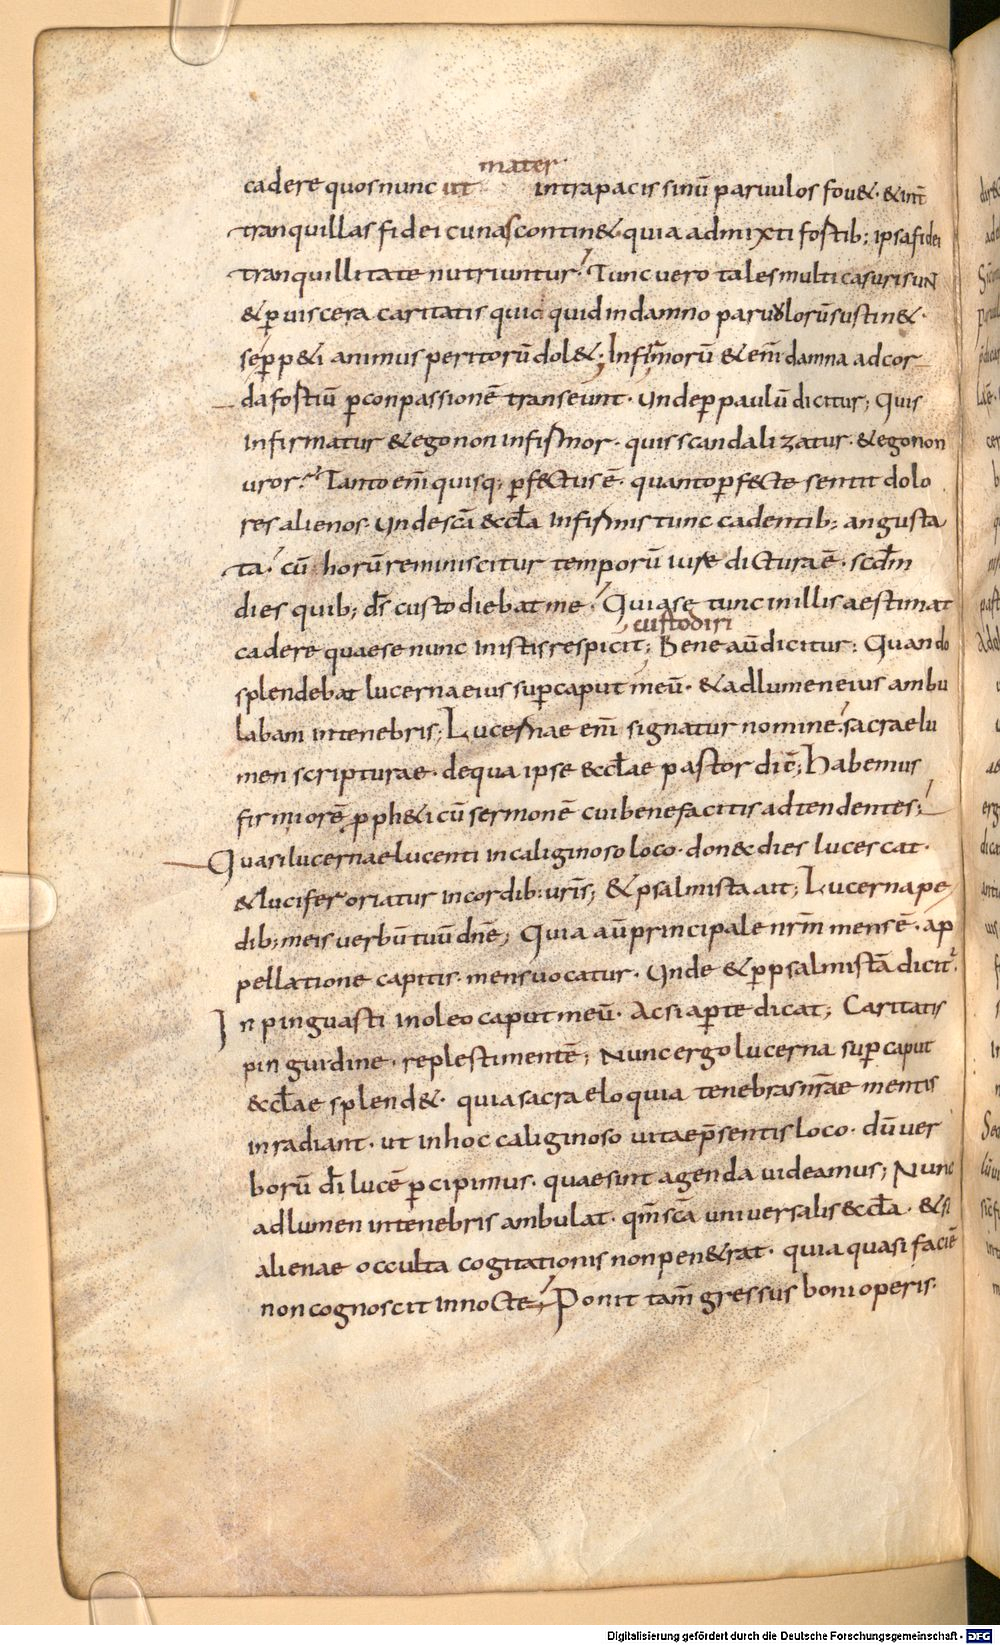 mater
cadere quos nunc ut intra pacis sinū paruulos fou&· & int̄
tranquillas fidei cunas contin& quia admixti fortib; ipsa fidei
tranquillitate nutriuntur· Tunc uero tales multi casuri suN
& ꝑ uiscera caritatis quicquid in damno paruulorū sustin&·
seꝑ p&i animus peritorū dol&; Infirmorū & eni̅ damna ad cor
da fortiū ꝑ conpassionē transeunt· Unde ꝑ paulū dicitur; Quis
infirmatur & ego non infirmor· quis scandalizatur· & ego non
uror· Tanto eni̅ quisq; ꝑfectus ē· quanto ꝑfecte sentit dolo
res alienos· Unde sc̄a eccl̄a infirmis tunc cadentib; angusta
ta· cū horū reminiscitur temporū iure dictura ē· scdm̄
dies quib; dr̄ custodiebat me· Quia se tunc in illis aestimat
custodiri
cadere quae se nunc in istis respicit; Bene au̅ dicitur; Quando
splendebat lucerna eius suꝑ caput meū· & ad lumen eius ambu
labam in tenebris; Lucernae eni̅ signatur nomine sacrae lu
men scripturae· de qua ipse eccl̄ae pastor dic̄; Habemus
firmiorē proph&icū sermonē cui bene facitis adtendentes;
Quasi lucernae lucenti in caliginoso loco· donec dies lucescat·
& lucifer oriatur in cordib; uris̄; & psalmista ait; Lucerna pe
dib; meis uerbū tuū dn̄e; Quia au̅ principale nrm̄ mens ē· ap
pellatione capitis· mens uocatur· Unde & ꝑ psalmistā dicit̄·
Inpinguasti in oleo caput meū· Acsi aꝑte dicat; Caritatis
pinguidine· replesti mentē; Nunc ergo lucerna suꝑ caput
eccl̄ae splend&· quia sacra eloquia tenebras nr̄ae mentis
inradiant· ut in hoc caliginoso uitae p̄sentis loco· dū uer
borū dī lucē ꝑcipimus· quae sint agenda uideamus; Nunc
ad lumen in tenebris ambulat· qm̄ sc̄a uniuersalis eccl̄a· & si
alienae occulta cogitationis non pen&rat· quia quasi faciē
non cognoscit in nocte; Ponit tam̄ gressus boni operis·
Digitalisierung gefördert durch die Deutsche Forschungsgemeinschaft - DFG